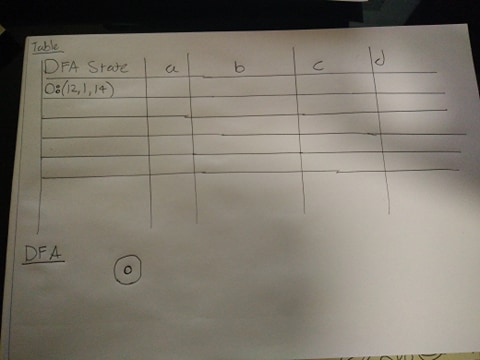 Table
DFA State a b c d
0:(12,1,14)
DFA
0